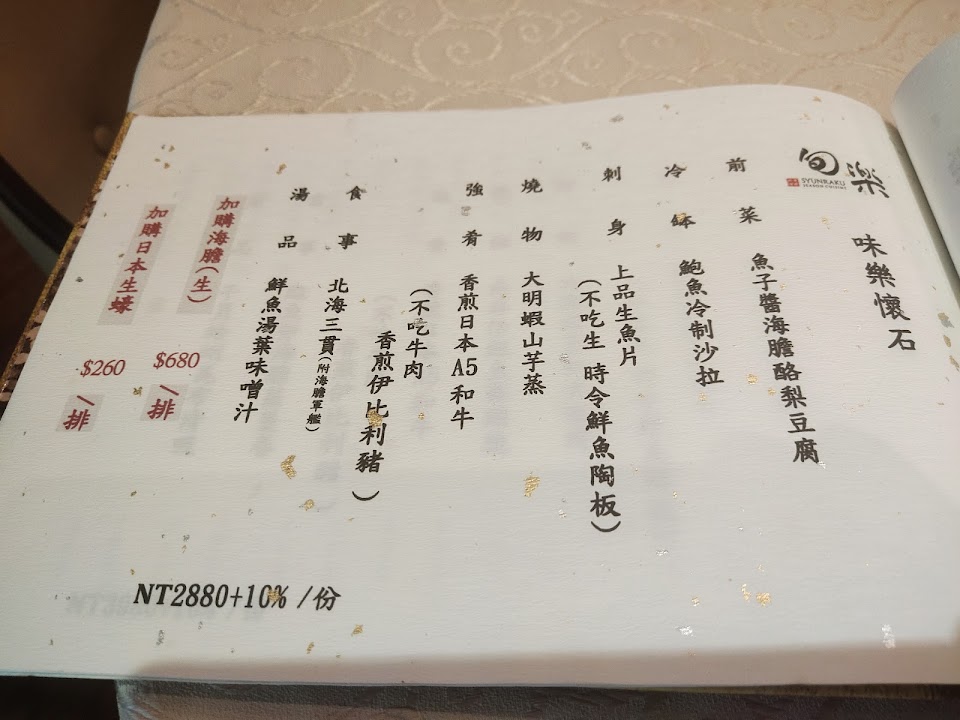 旬樂
SYUNRAKU
SEASON CUISINE
味樂懷石
前菜 魚子醬海膽酪梨豆腐
冷缽 鮑魚冷制沙拉
刺身 上品生魚片
(不吃生 時令鮮魚陶板)
燒物 大明蝦山芋蒸
強肴 香煎日本A5和牛
(不吃牛肉
香煎伊比利豬)
食事 北海三貫(附海膽軍艦)
湯品 鮮魚湯葉味噌汁
加購海膽(生) $680/排
加購日本生蠔 $260/排
NT2880+10% /份